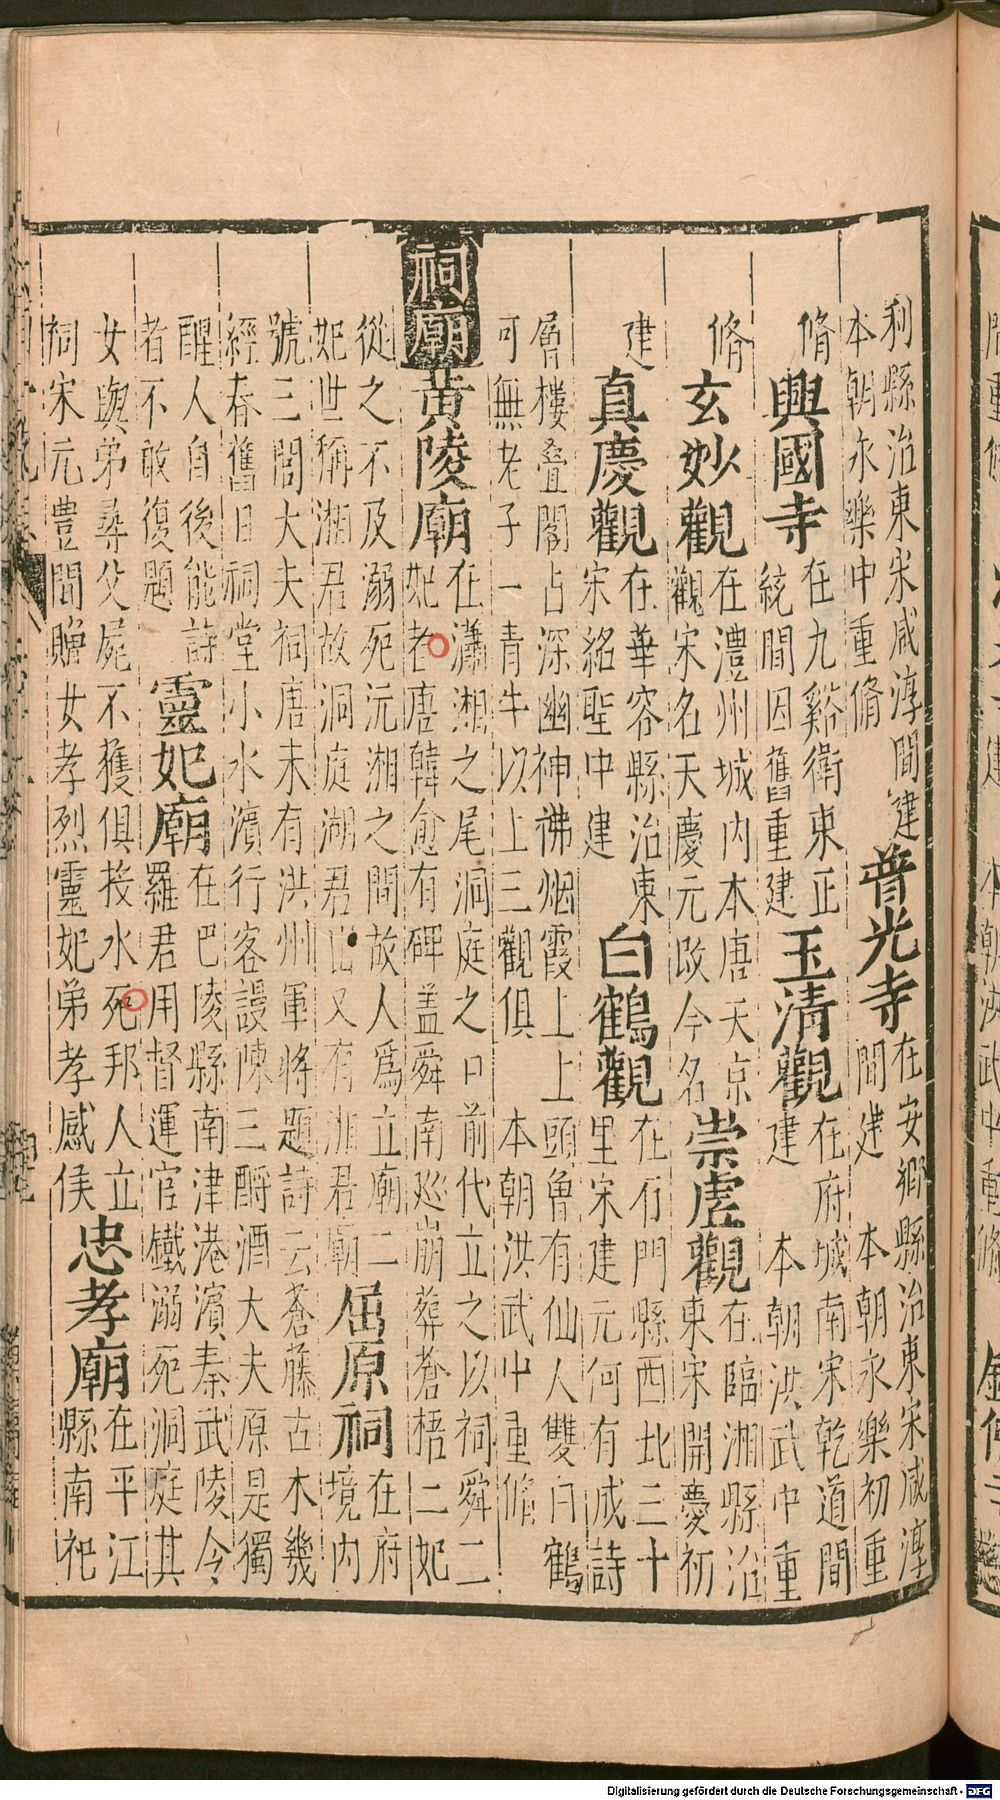 利縣治東宋咸淳間建
本朝永樂中重脩
普光寺
在安鄉縣治東宋咸淳
間建 本朝永樂初重
脩
興國寺
在九谿衛東正
統間因舊重建
玉清觀
在府城南宋乾道間
建 本朝洪武中重
脩
玄妙觀
在澧州城內本唐天京
觀宋名天慶元改今名
崇虛觀
在臨湘縣治
東宋開慶初
建
真慶觀
在華容縣治東
宋紹聖中建
白鶴觀
在石門縣西北三十
里宋建元何有成詩
層樓疊閣占深幽神彿烟霞上上頭魯有仙人雙白鶴
可無老子一青牛以上三觀俱 本朝洪武中重脩
祠廟
黃陵廟
在瀟湘之尾洞庭之口前代立之以祠舜二
妃者唐韓愈有碑蓋舜南廵崩葬蒼梧二妃
從之不及溺死沅湘之間故人爲立廟二
妃世稱湘君故洞庭湖君山又有湘君廟
屈原祠
在府
境內
號三閭大夫祠唐末有洪州軍將題詩云蒼藤古木幾
經春舊日祠堂小水濱行客謾陳三酹酒大夫原是獨
醒人自後能詩
者不敢復題
靈妃廟
在巴陵縣南津港濱秦武陵令
羅君用督運官鐵溺死洞庭其
女與弟尋父屍不獲俱投水死邦人立
祠宋元豐間贈女孝烈靈妃弟孝感侯
忠孝廟
在平江
縣南祀
Digitalisierung gefördert durch die Deutsche Forschungsgemeinschaft - DFG